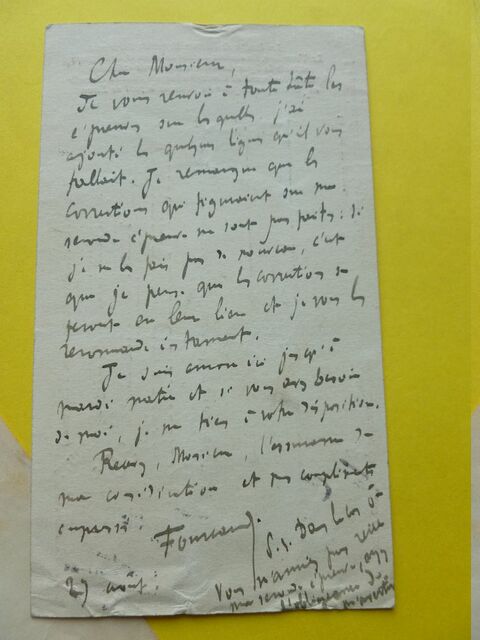 Cher Monsieur,
Je vous renvoie à toute hâte les
épreuves sur lesquelles j'ai
ajouté les quelques lignes qu'il vous
fallait. Je remarque que les
corrections qui figuraient sur ma
seconde épreuve ne sont pas faites : si
je ne les fais pas de nouveau, c'est
que je pense que les corrections se
feront en leur lieu et je vous les
recommande instamment.
Je suis encore ici jusqu'à
mardi matin et si vous avez besoin
de moi, je me tiens à votre disposition.
Recevez, Monsieur, l'assurance de
ma considération et mes compliments
empressés.
27 août.
P.S. Dans le cas où
vous n'auriez pas
ma seconde épreuve